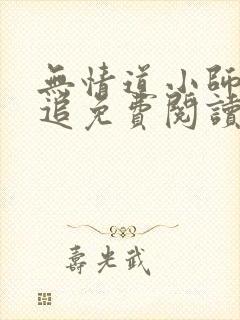 無情道小師
追免費閱讀
壽光武